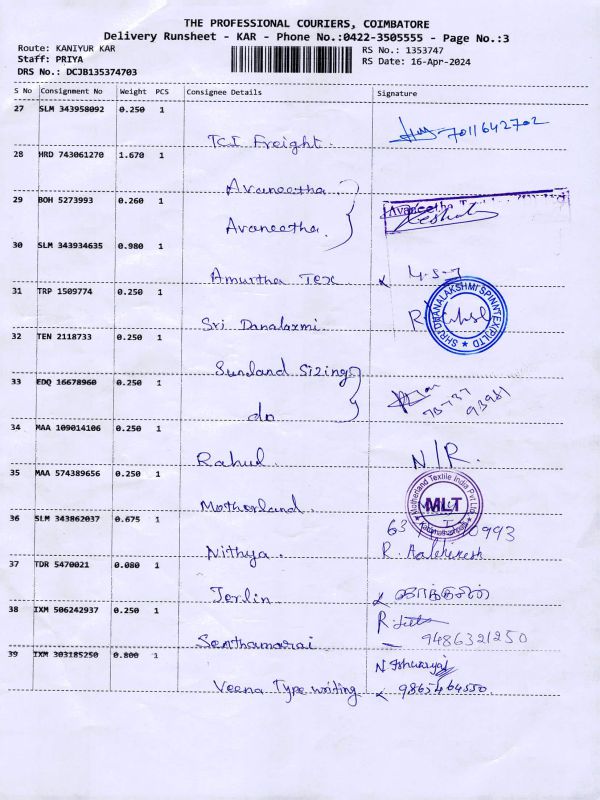 THE PROFESSIONAL COURIERS, COIMBATORE
Delivery Runsheet - KAR - Phone No.:0422-3505555 - Page No.:3
Route: KANIYUR KAR
RS No.: 1353747
Staff: PRIYA
RS Date: 16-Apr-2024
DRS No.: DCJB135374703
S No Consignment No Weight PCS Consignee Details Signature
27 SLM 343958092 0.250 1
7011642702
TCI Freight.
28 HRD 743061270 1.670 1
Avaneetha
29 BOH 5273993 0.260 1
Avaneetha
Avaneetha.
30 SLM 343934635 0.980 1
Amurtha Tex
31 TRP 1509774 0.250 1
SHRI DHANALAKSHMI SPINNTEX (P) LTD
Sri Danalaxmi
32 TEN 2118733 0.250 1
Sunland Sizing
33 EDQ 16678960 0.250 1
do
34 MAA 109014106 0.250 1
Rahul. N/R.
35 MAA 574389656 0.250 1
Motherland Textile India Pvt Ltd
MLT
Motherland.
36 SLM 343862037 0.675 1
Nithya.
37 TDR 5470021 0.080 1
Jerlin
38 IXM 506242937 0.250 1
Senthamarai 9486321250
39 IXM 303185250 0.800 1
Veena Type writing. 9865464550.